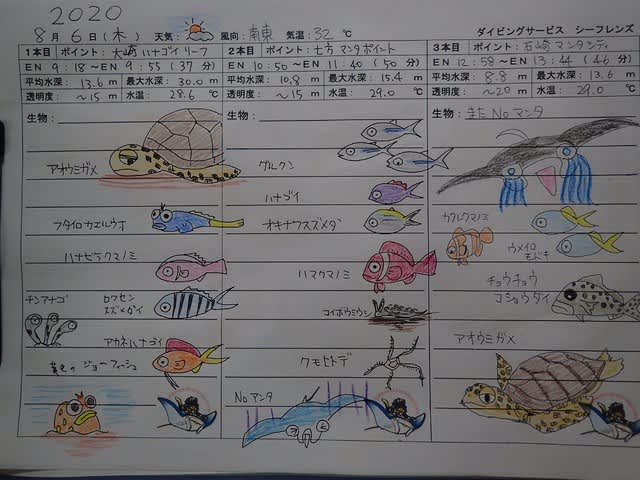 2020
8月 6日(木) 天気: 風向: 南東 気温: 32 ℃ ダイビングサービス シーフレンズ
1本目 ポイント: 大崎 ハナゴイ リーフ
EN 9:18 ~ EN 9:55 (37 分)
平均水深: 13.6 m 最大水深: 30.0 m
透明度: ~15 m 水温: 28.6 ℃
生物:
アオウミガメ
フタイロカエルウオ
ハナビラクマノミ
チンアナゴ
ロクセン
スズメダイ
アカネハナゴイ
黄色の ジョーフィッシュ
2本目 ポイント: 七方 マンタポイント
EN 10:50 ~ EN 11:40 (50 分)
平均水深: 10.8 m 最大水深: 15.4 m
透明度: ~15 m 水温: 29.0 ℃
生物:
グルクン
ハナゴイ
オキナワスズメダイ
ハマクマノミ
コイボウミウシ
クモヒトデ
No マンタ
3本目 ポイント: 石崎 マンタシティ
EN 12:58 ~ EN 13:44 (46 分)
平均水深: 8.8 m 最大水深: 13.6 m
透明度: ~20 m 水温: 29.0 ℃
生物: また No マンタ
カクレクマノミ
ウメイロ
モドキ
チョウチョウ
コショウダイ
アオウミガメ